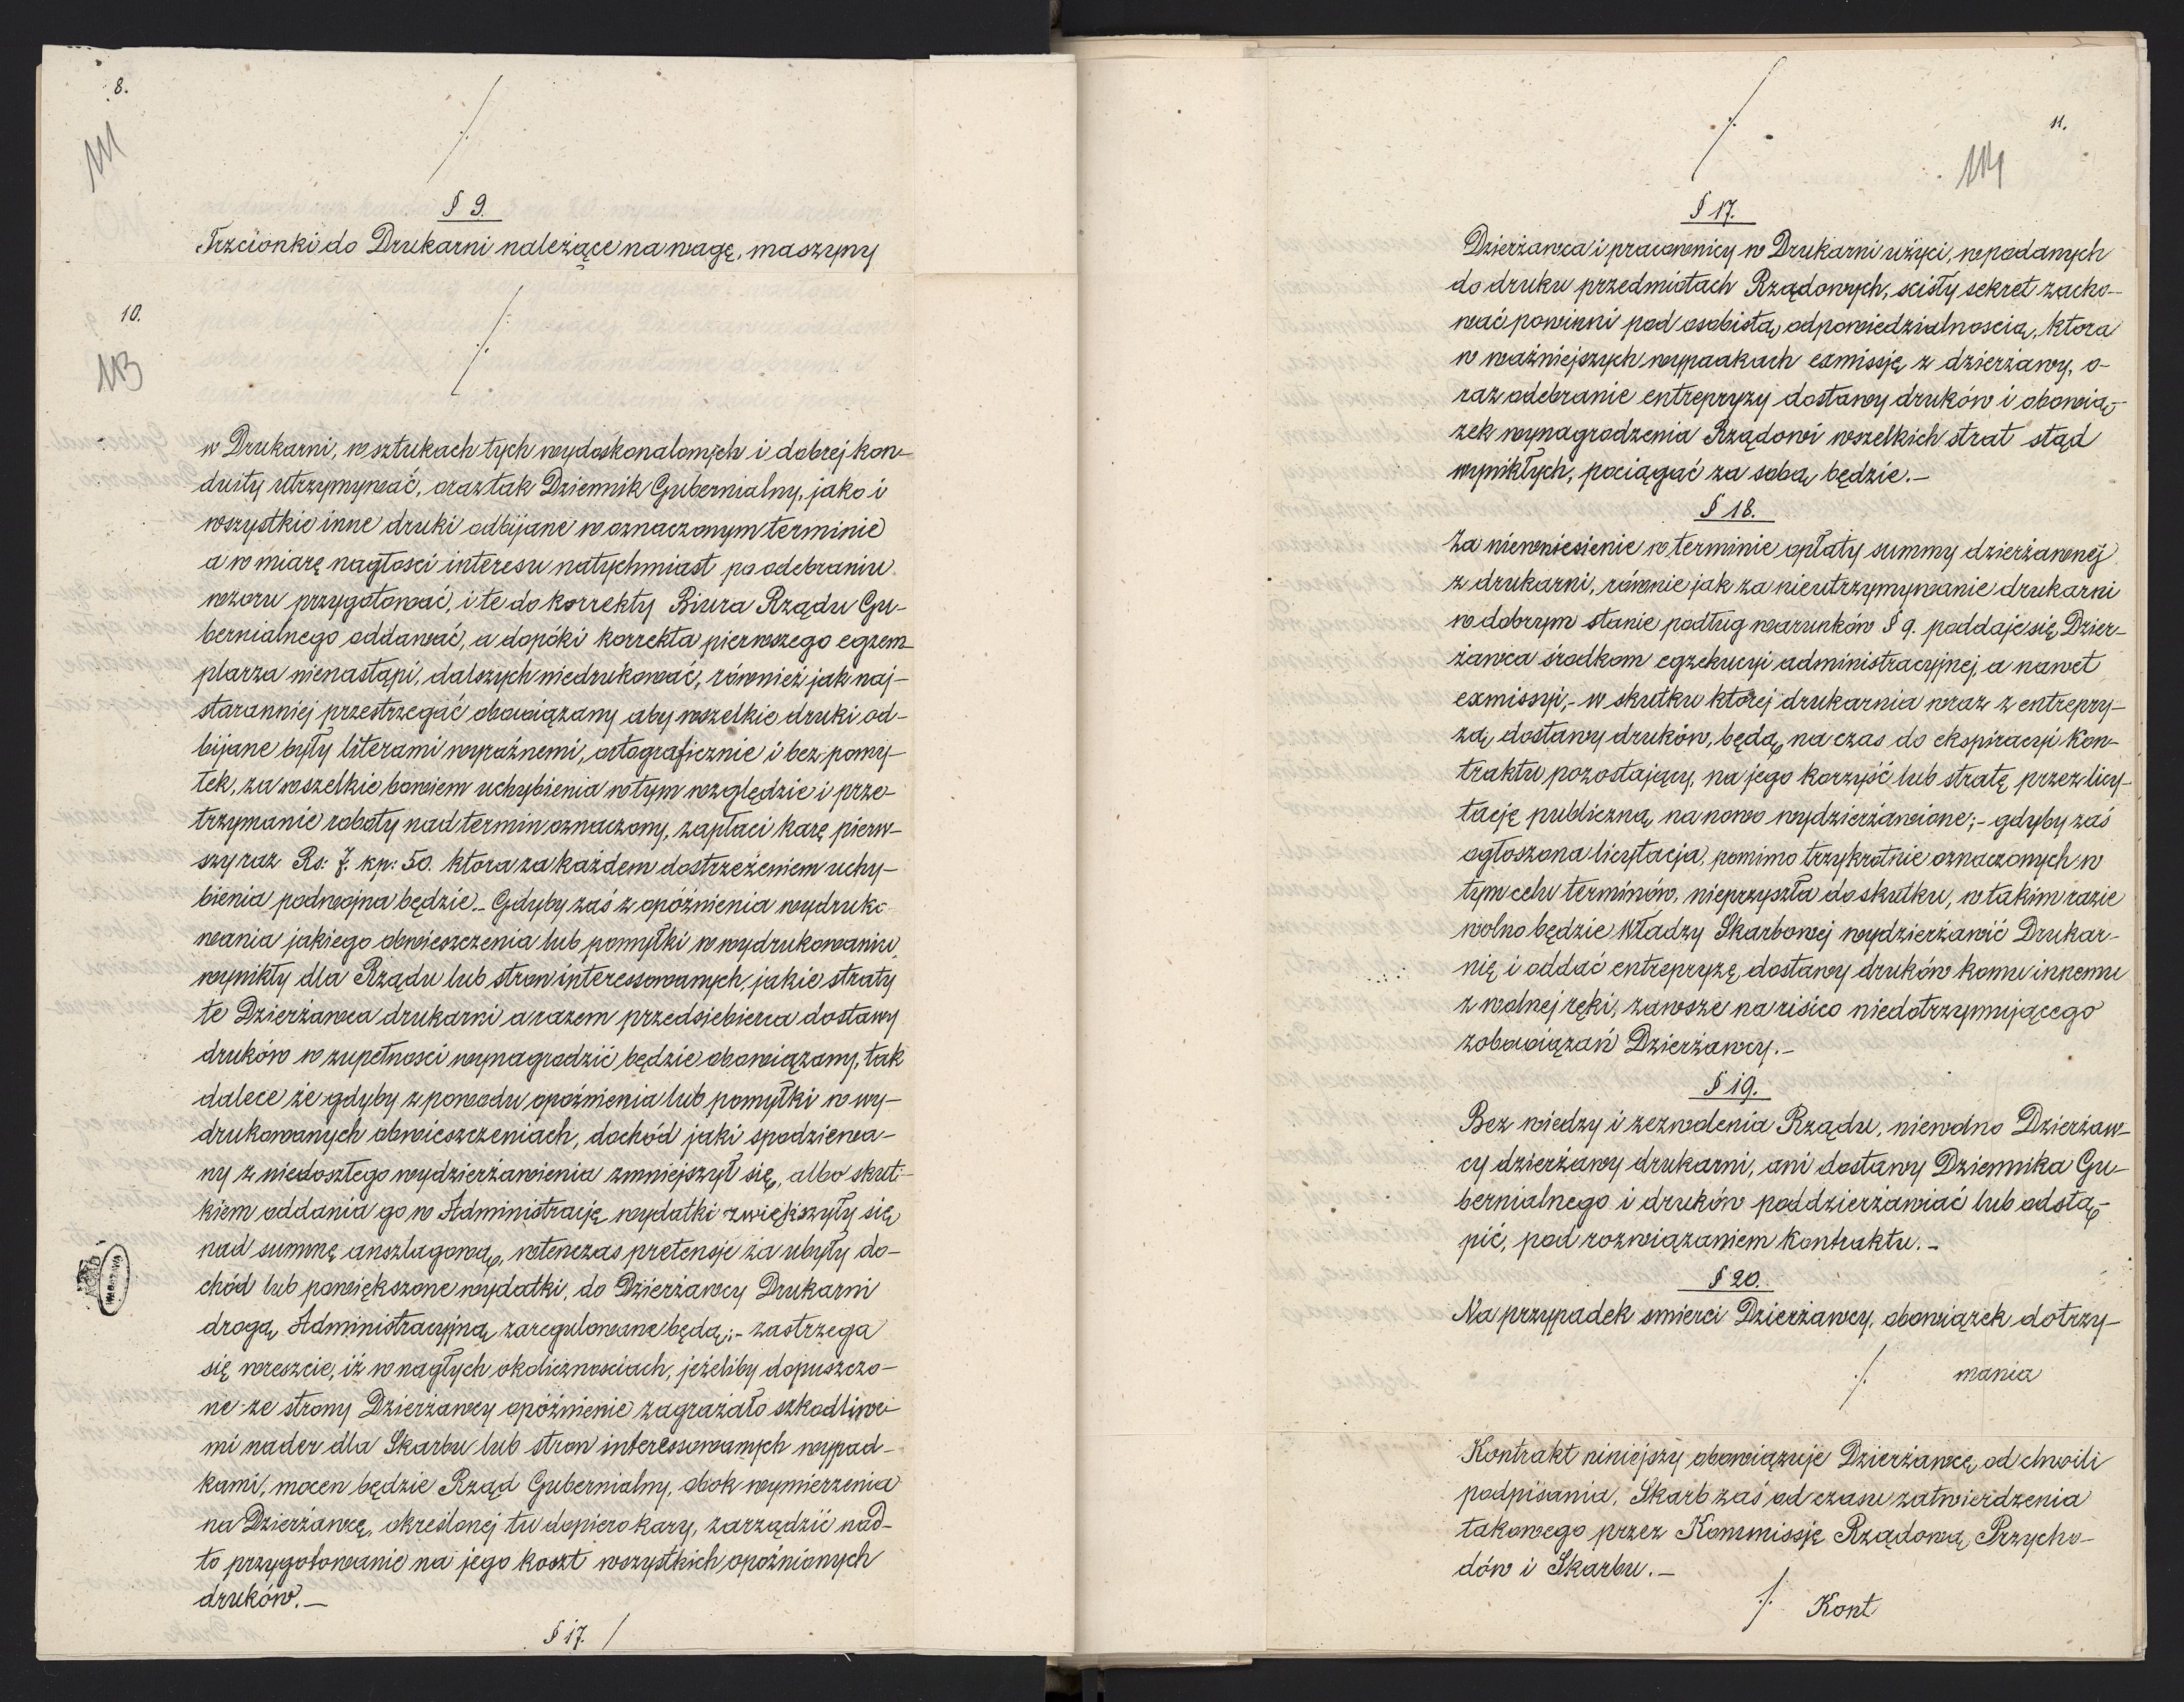 8.
111
./.
§ 9.
Trzcionki do Drukarni należące na wagę, maszyny
10.
113
./.
w Drukarni, w sztukach tych wydoskonalonych i dobrej kon-
duity utrzymywać, oraz tak Dziennik Gubernialny, jako i
wszystkie inne druki odbijane w oznaczonym terminie
a w miarę nagłosci interesu natychmiast po odebraniu
wzoru przygotować, i te do korrekty Biura Rządu Gu-
bernialnego oddawać, a dopóki korrekta pierwszego egzem-
plarza nienastąpi, dalszych niedrukować, również jak naj-
staranniej przestrzegać obowiązany aby wszelkie druki od-
bijane były literami wyraźnemi, ortograficznie i bez pomy-
łek, za wszelkie bowiem uchybienia w tym względzie i prze-
trzymanie roboty nad termin oznaczony, zapłaci karę pierw-
szy raz Rs: 7. kp: 50. ktora za każdem dostrzeżeniem uchy-
bienia podwojna będzie. - Gdyby zaś z opóźnienia wydruko-
wania jakiego obwieszczenia lub pomyłki w wydrukowaniu,
wynikły dla Rządu lub stron interessowanych, jakie straty
te Dzierżawca drukarni a razem przedsiebierca dostawy
druków w zupełnosci wynagrodzić będzie obowiązany, tak
dalece że gdyby z powodu opoźnienia lub pomyłki w wy-
drukowanych obwieszczeniach, dochód jaki spodziewa-
ny z niedoszłego wydzierżawienia zmniejszył się, albo skut-
kiem oddania go w Administracją wydatki zwiększyły się
nad summę anszlagową, wtenczas pretensje za ubyły do-
chód lub powiększone wydatki, do Dzierżawcy Drukarni
drogą Administracyjną zaregulowane będą; - zastrzega
się wreszcie, iż w nagłych okolicznosciach, jeżeliby dopuszczo-
ne ze strony Dzierżawcy opóźnienie zagrażało szkodliwe-
mi nader dla Skarbu lub stron interessowanych wypad-
kami, mocen będzie Rząd Gubernialny, obok wymierzenia
na Dzierżawcę, okreslonej tu dopiero kary, zarządzić nad-
to przygotowanie na jego koszt wszystkich opoźnionych
druków. -
§ 17. /
./.
11.
114
§ 17.
Dzierżawca i pracownicy w Drukarni użyci, w podanych
do druku przedmiotach Rządowych, scisły sekret zacho-
wać powinni pod osobistą odpowiedzialnoscią, ktora
w ważniejszych wypaakach exmissję z dzierżawy, o-
raz odebranie entrepryzy dostawy druków i obowią-
zek wynagrodzenia Rządowi wszelkich strat stąd
wynikłych, pociągać za sobą będzie. -
§ 18.
Za niewniesienie w terminie opłaty summy dzierżawnej
z drukarni, równie jak za nieutrzymywanie drukarni
w dobrym stanie podług warunków § 9. poddaje się Dzier-
żawca środkom egzekucyi administracyjnej, a nawet
exmissyi, - w skutku której drukarnia wraz z entrepry-
zą dostawy druków, będą na czas do ekspiracyi Kon-
traktu pozostający, na jego korzyść lub stratę przez licy-
tację publiczną na nowo wydzierżawione; - gdyby zaś
ogłoszona licytacja, pomimo trzykrotnie oznaczonych w
tym celu terminów, nieprzyszła do skutku, w takim razie
wolno będzie Władzy Skarbowej wydzierżawić Drukar-
nię i oddać entrepryzę dostawy druków komu innemu
z wolnej ręki, zawsze na risico niedotrzymującego
zobowiązań Dzierżawcy. -
§ 19.
Bez wiedzy i zezwolenia Rządu, niewolno Dzierżaw-
cy dzierżawy drukarni, ani dostawy Dziennika Gu-
bernialnego i druków poddzierżawiać lub odstą-
pić, pod rozwiązaniem Kontraktu. -
§ 20.
Na przypadek smierci Dzierżawcy, obowiązek dotrzy-
./. mania
Kontrakt niniejszy obowiązuje Dzierżawcę od chwili
podpisania, Skarb zaś od czasu zatwierdzenia
takowego przez Kommissję Rządową Przycho-
dów i Skarbu. -
./. Kont